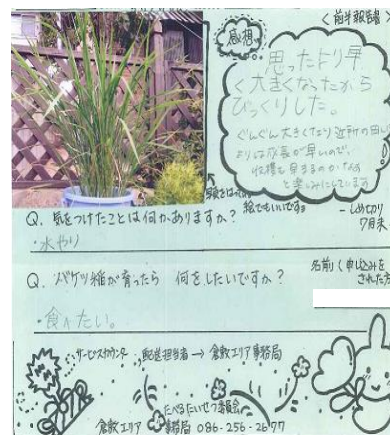 ＜前半報告書＞
感想
思ったより早
く大きくなったから
びっくりした。
ぐんぐん大きくなり近所の田んぼ
よりは成長が早いので、
収穫も早まるのかなぁ
と楽しみにしています
写真をはっても
絵でもいいですよ
ーしめきりー
7月末
Q. 気をつけたことは何かありますか？
・水やり
Q. バケツ稲が育ったら 何をしたいですか？
名前（申し込みを
された方
・食べたい。
サービスカウンター・配送担当者→倉敷エリア事務局
たべるたいせつ委員会
倉敷エリア 事務局 086-256-2677